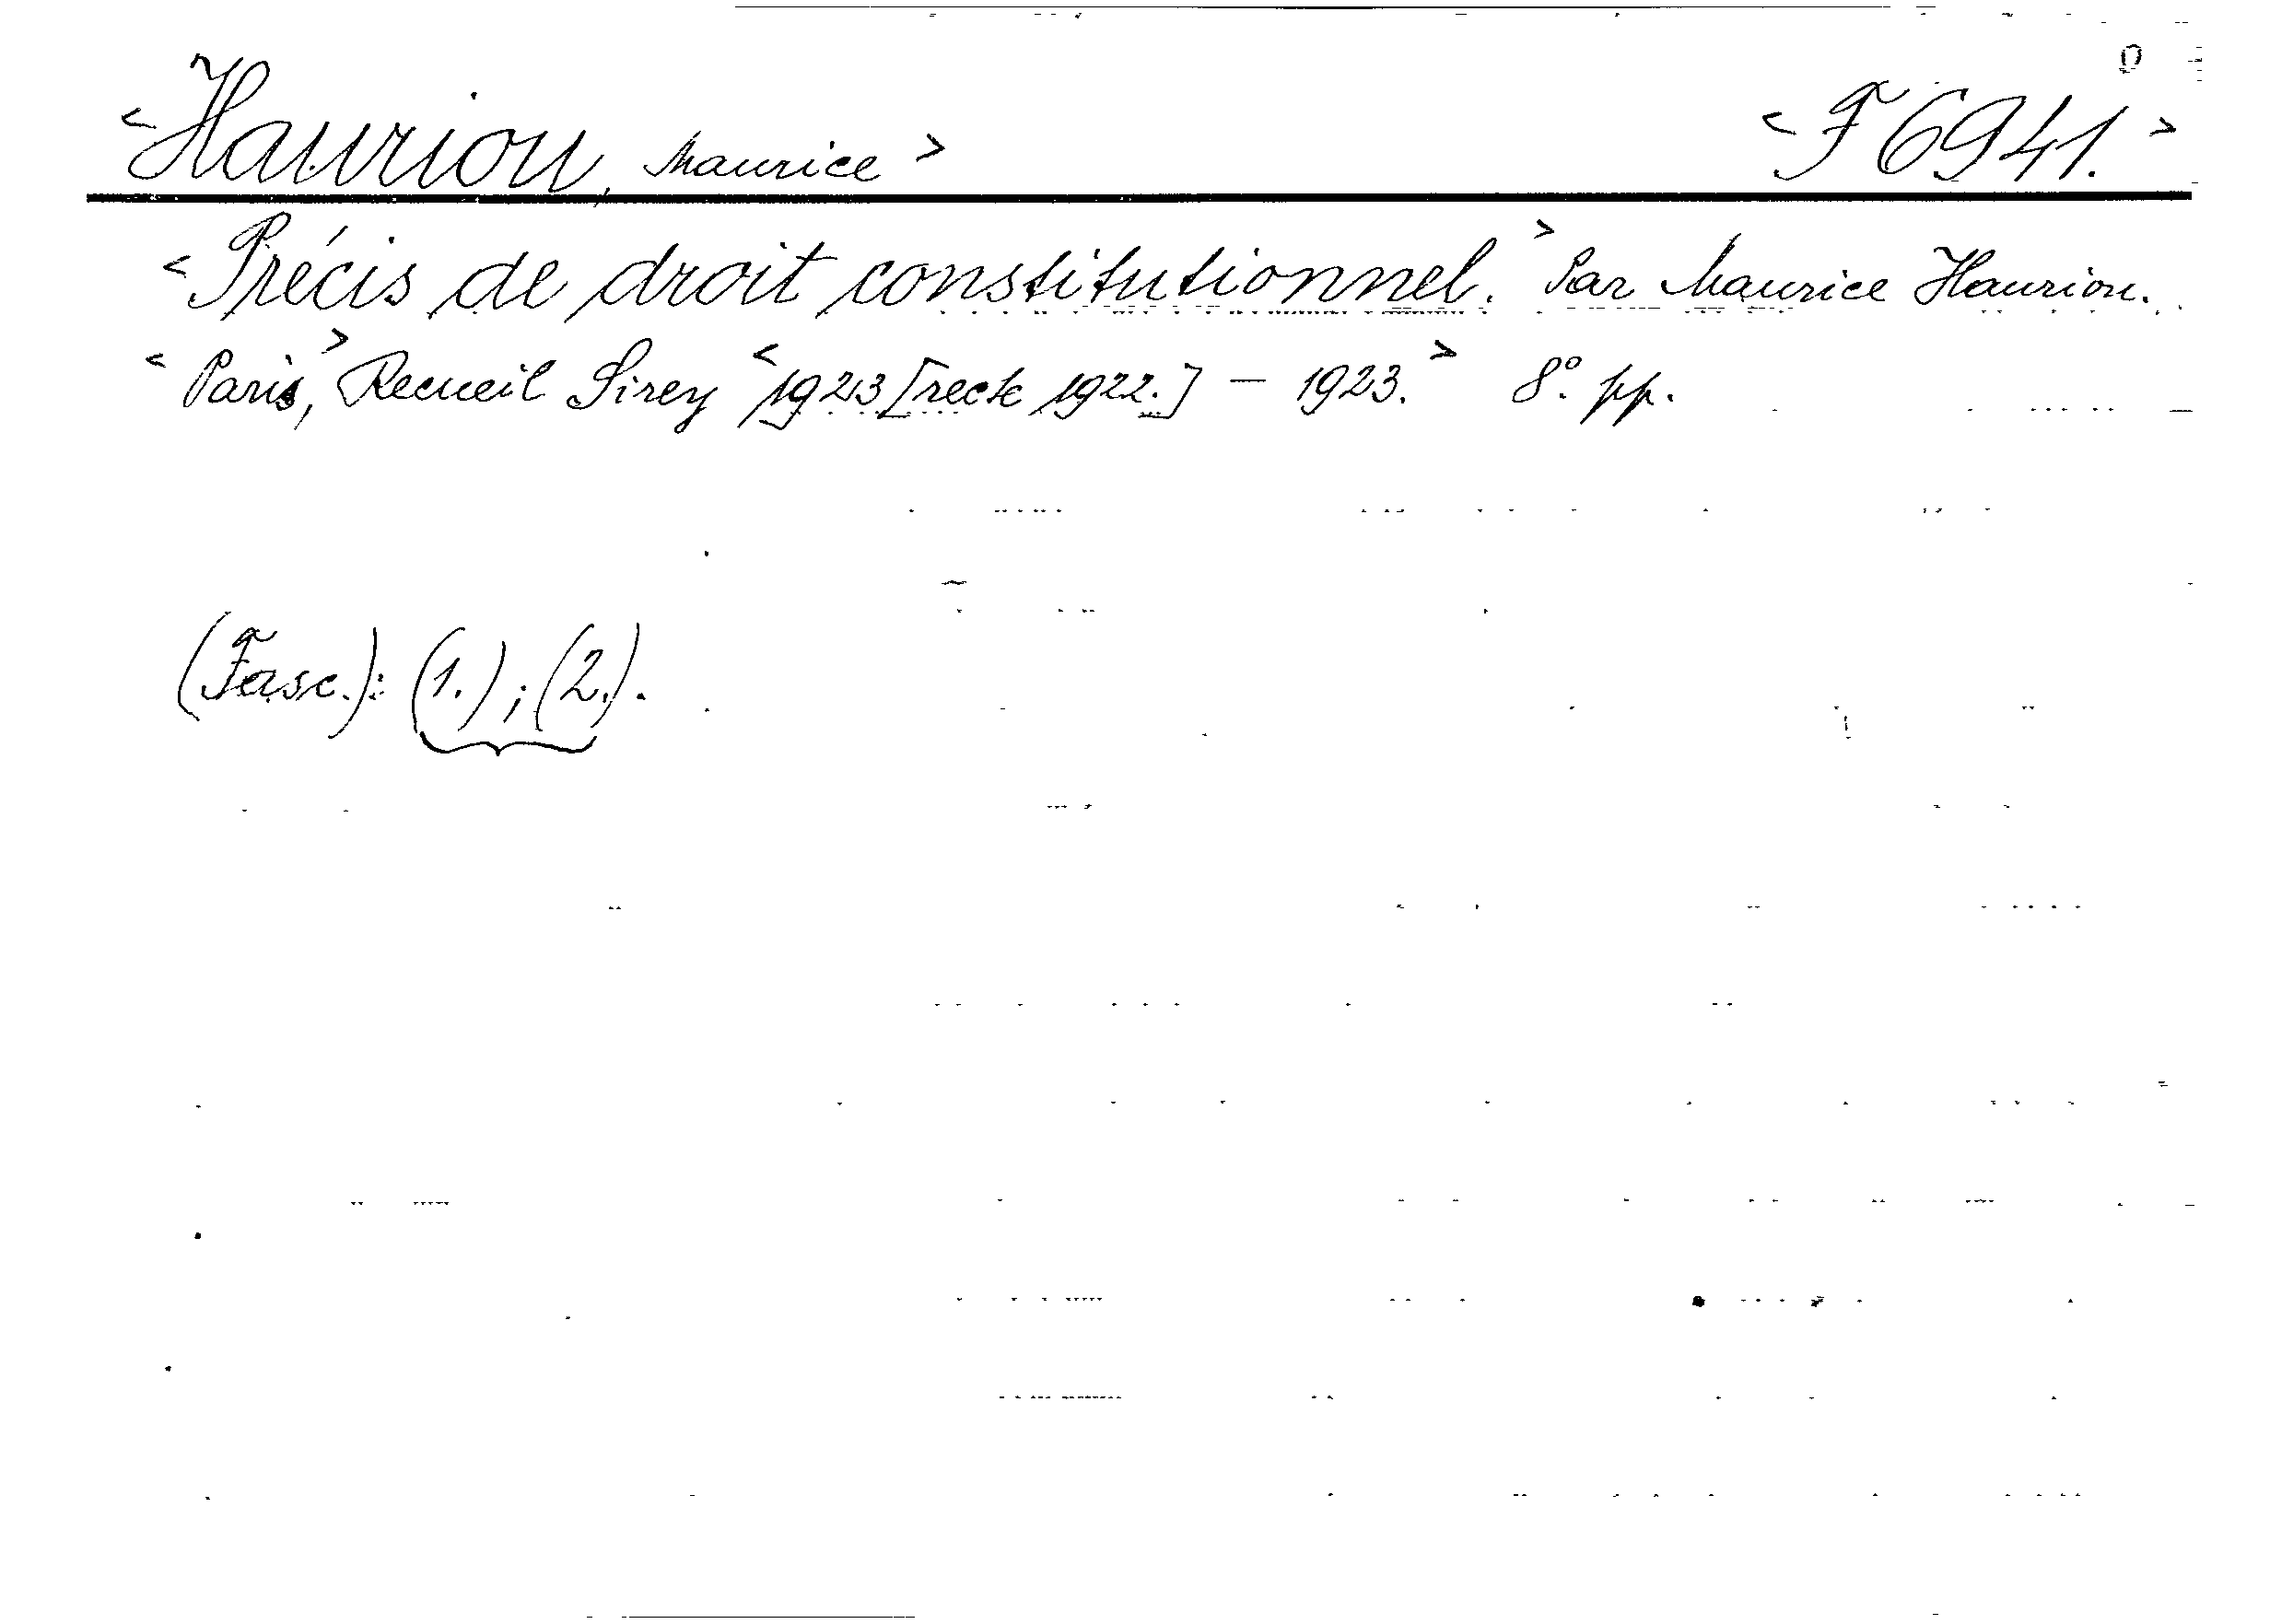 <Hauriou, Maurice> <F 6941.>
<Précis de droit constitutionnel.> Par Maurice Hauriou.
<Paris,> Recueil Sirey <1923 [recte 1922.] – 1923.> 8°. pp.
(Fasc.): (1.); (2.).